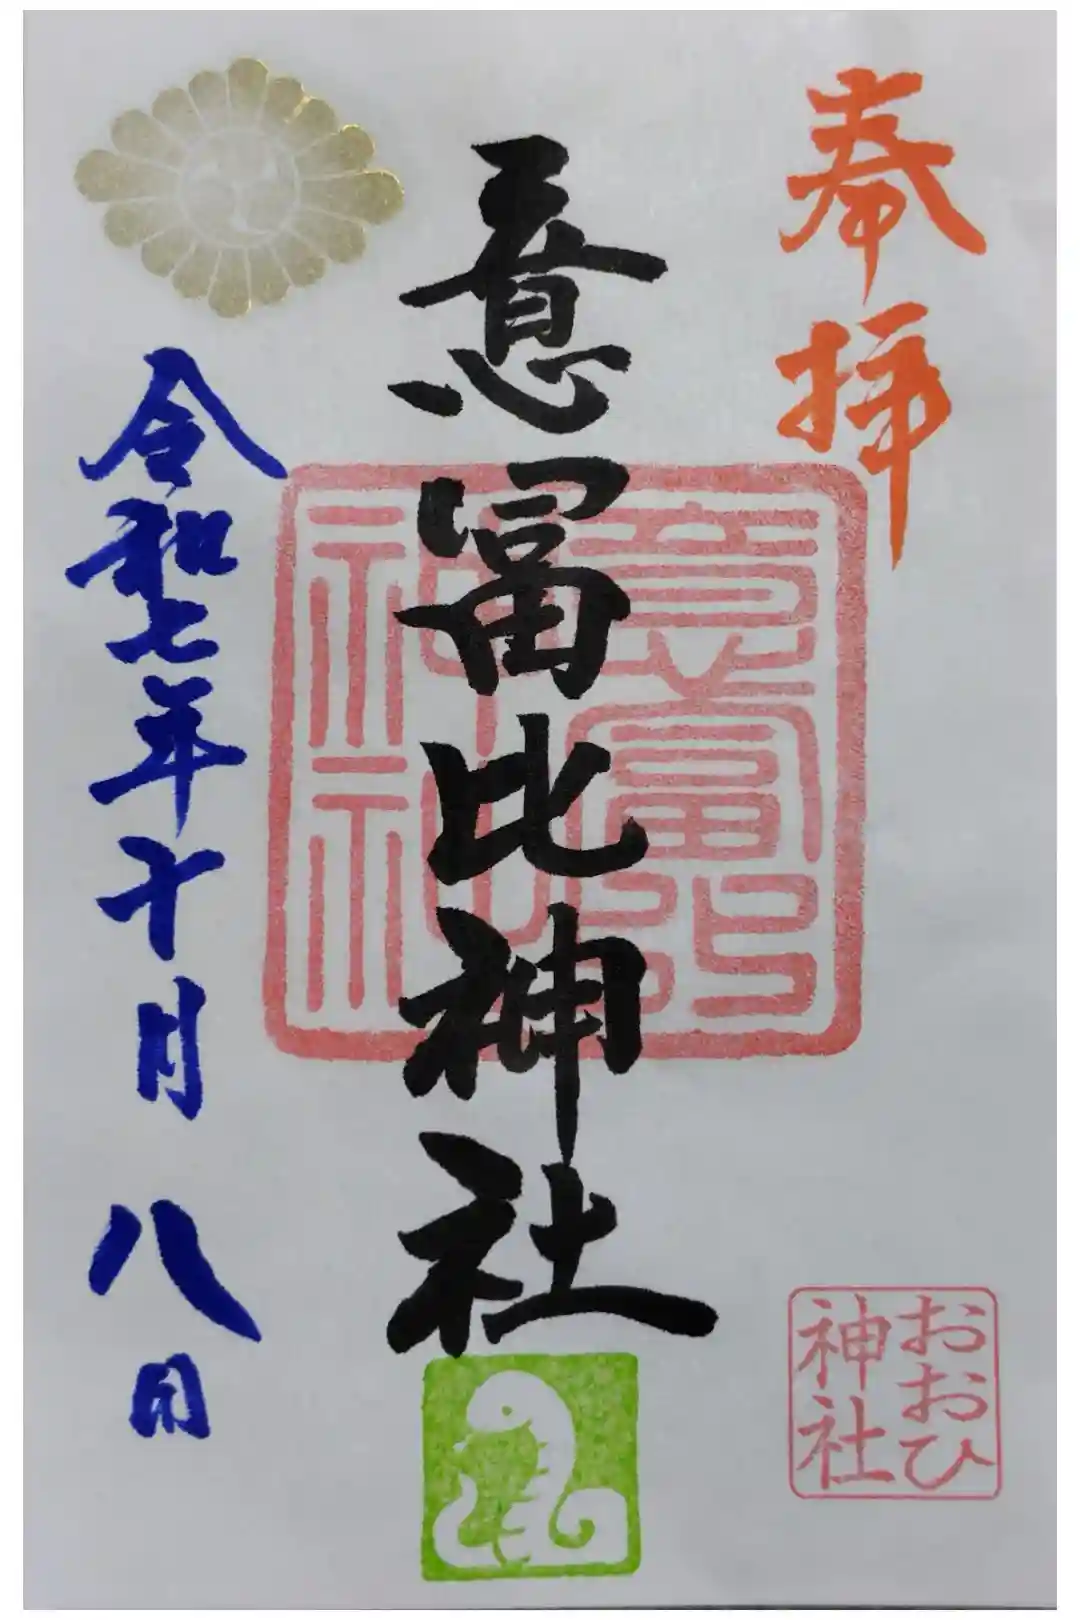 奉拝
意冨比神社
意富比
神社
おおひ
神社
令和七年十月八日